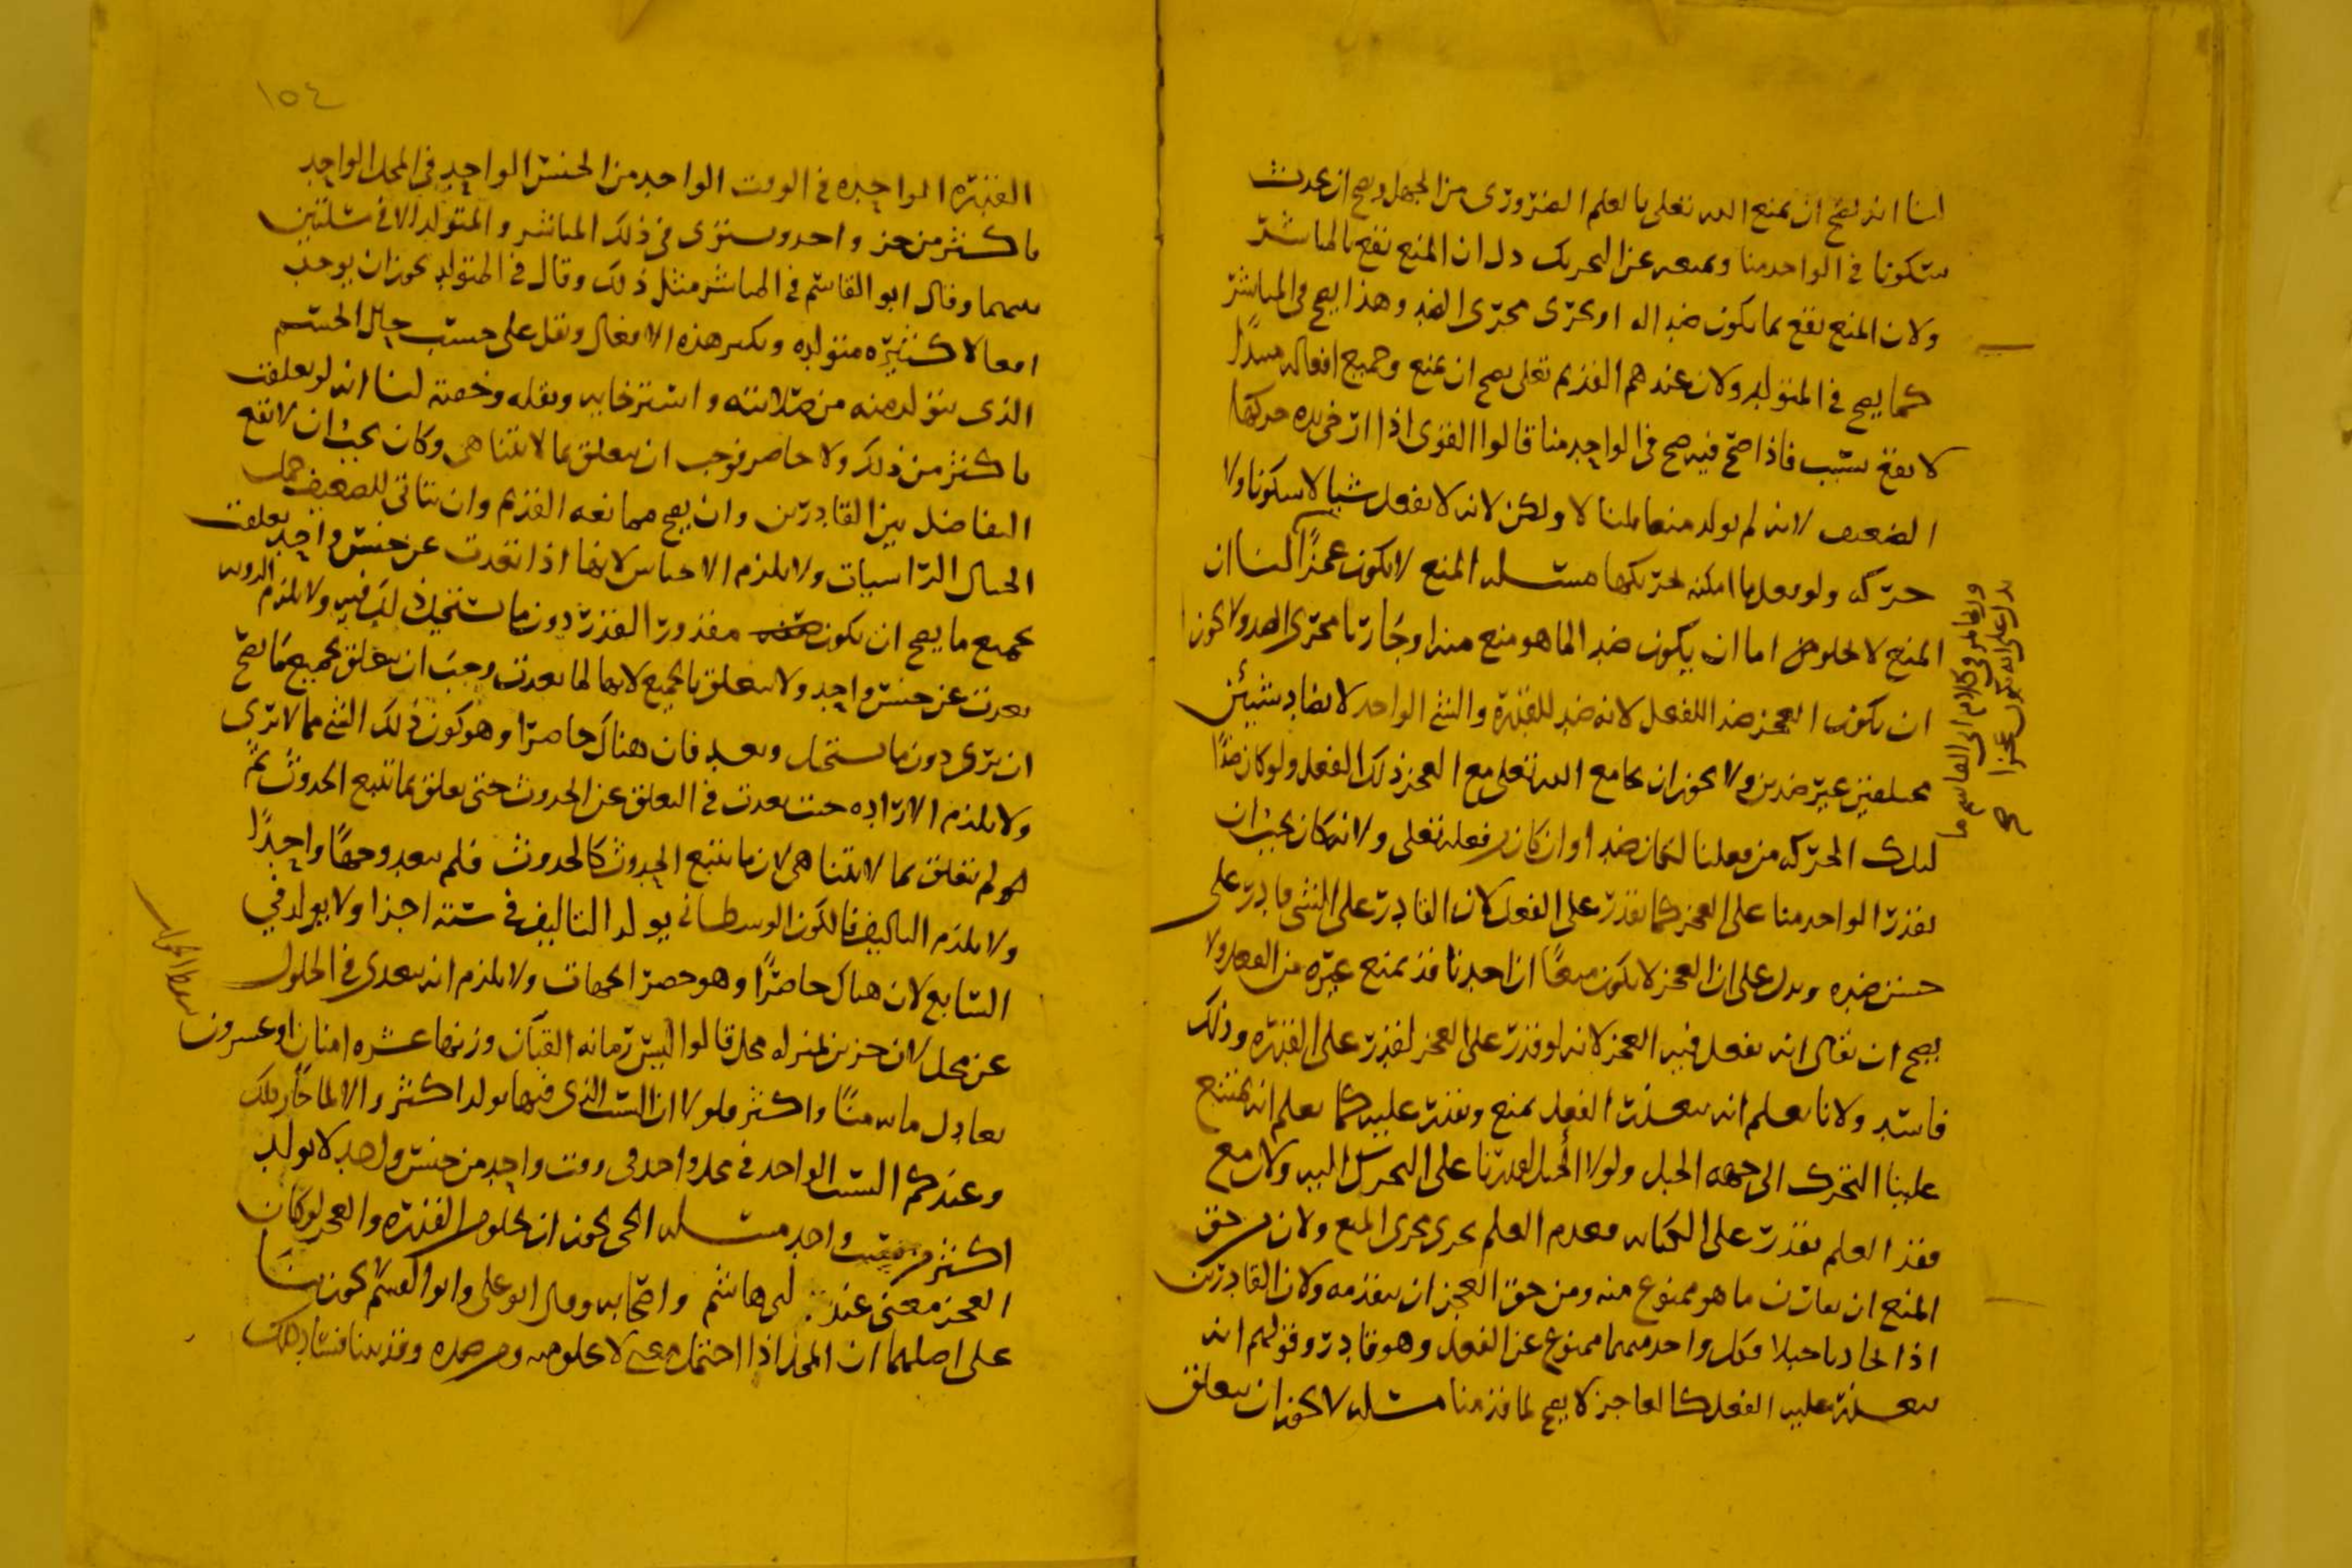 لنا انه يصح ان يمنع الله تعلى بالعلم الضروري من الجهل ويصح ان يحدث
سكونا في الواحد منا ويمنعه عن التحريك دل ان المنع يقع بالمباشر
ولان المنع يقع بما يكون ضدا له او يجري مجرى الضد وهذا يصح في المباشر
كما يصح في المتولد ولان عندهم القديم تعلى يصح ان يمنع وجميع افعاله مبتدأ
لا يقع بسبب فاذا صح فيه صح في الواحد منا قالوا القوي اذا اثر في يده حركها
الضعيف لانه لم يولد منعا قلنا لا ولكن لانه لا يفعل شيا لا سكونا ولا
حركه ولو فعل ما امكنه تحريكها مسئله المنع لا يكون عجزًا لنا ان
المنع لا يخلو من اما ان يكون ضد الما هو منع منه او جاريا مجرى الضد ولا يجوز
ان يكون العجز ضدا للفعل لانه ضد للقدرة والشي الواحد لا يضاد شيئين
مختلفين غير ضدين ولا يجوز ان يجامع الله تعلى مع العجز ذلك الفعل ولو كان ضدًا
لتلك الحركه من فعلنا لكان ضدا وان كان من فعله تعلى ولانه كان يجب ان
يقدر الواحد منا على العجز كما يقدر على الفعل لان القادر على الشي قادر على
جنس ضده ويدل على ان العجز لا يكون منعًا ان احدنا قد يمنع غيره من الفعل ولا
يصح ان يقال انه يفعل فيه العجز لانه لو قدر على العجز لقدر على القدره وذلك
فاسد ولانا نعلم انه يتعذر الفعل بمنع ويقدر عليه كما نعلم انه يمتنع
علينا التحرك الى جهه الحبل ولولا الحبل لقدرنا على التحرك اليه ولان مع
فقد العلم يقدر على الكتابه فعدم العلم يجري مجرى المنع ولان من حق
المنع ان يقارن ما هو ممنوع منه ومن حق العجز ان يتقدمه ولان القادرين
اذا تجاذبا حبلا فكل واحد منهما ممنوع عن الفعل وهو قادر وقولهم انه
يتعذر عليه الفعل كالعاجز لا يصح لما قدمنا مسئله لا يجوز ان يتعلق
وربما مر في كلام ابي القاسم ما
يدل على انه يكون عجزا صح
١٥٤
القدره الواحده في الوقت الواحد من الجنس الواحد في المحل الواحد
باكثر من جزء واحد ويستوي في ذلك المباشر والمتولد الا في شيئين
منهما وقال ابو القاسم في المباشر مثل ذلك وقال في المتولد يجوز ان يوجب
افعالا كثيره متولده ويكثر هذه الافعال ويقل على حسب حال الجسم
الذي يتولد منه من صلابته واسترخايه وثقله وخفته لنا انه لو تعلقت
باكثر من ذلك ولا حاصر فوجب ان يتعلق بما لا يتناهى وكان يجب ان لا يقع
التفاضل بين القادرين وان يصح ممانعه القديم وان يتاتى للضعيف حمل
الجبال الراسيات ولا يلزم الاجناس لانها اذا تعدت عن جنس واحد تعلقت
بجميع ما يصح ان يكون مقدور القدر دون ما يستحيل ذلك فيه ولا يلزم الرويه
تعدت عن جنس واحد ولا يتعلق بالجميع لانها لما تعدت وجب ان يتعلق بجميع ما يصح
ان يرى دون ما يستحيل وبعد فان هناك حاصرًا وهو كون ذلك الشي مما لا يرى
ولا يلزم الاراده حيث تعدت في التعلق عن الحدوث حتى تعلق بما يتبع الحدوث ثم
لم تعلق بما لا يتناهى لان ما يتبع الحدوث كالحدوث فلم يعد وجهًا واحدًا
ولا يلزم التاليف فالكون الوسطاني يولد التاليف في سته اجزا ولا يولد في
السابع لان هناك حاصرًا وهو حصر الجهات ولا يلزم انه يتعدى في الحلول
عن محل لان جزين بمنزله محل قالوا اليس رمانه القبان وزنها عشره امنان او عشرون
يعادل مايه منًا واكثر فلولا ان السبب الذي فيها يولد اكثر والا لما جاز ذلك
وعندكم السبب الواحد في محل واحد في وقت واحد من جنس واحد لا يولد
اكثر من مسبب واحد مسئله الحي يجوز ان يخلو من القدره والعجز لو كان
العجز معنى عند ابي هاشم واصحابه وقال ابو علي وابو القسم لا يجوز بنا
على اصلهما ان المحل اذا احتمل معنى لا يخلو منه ومن ضده وقد بينا فساد ذلك